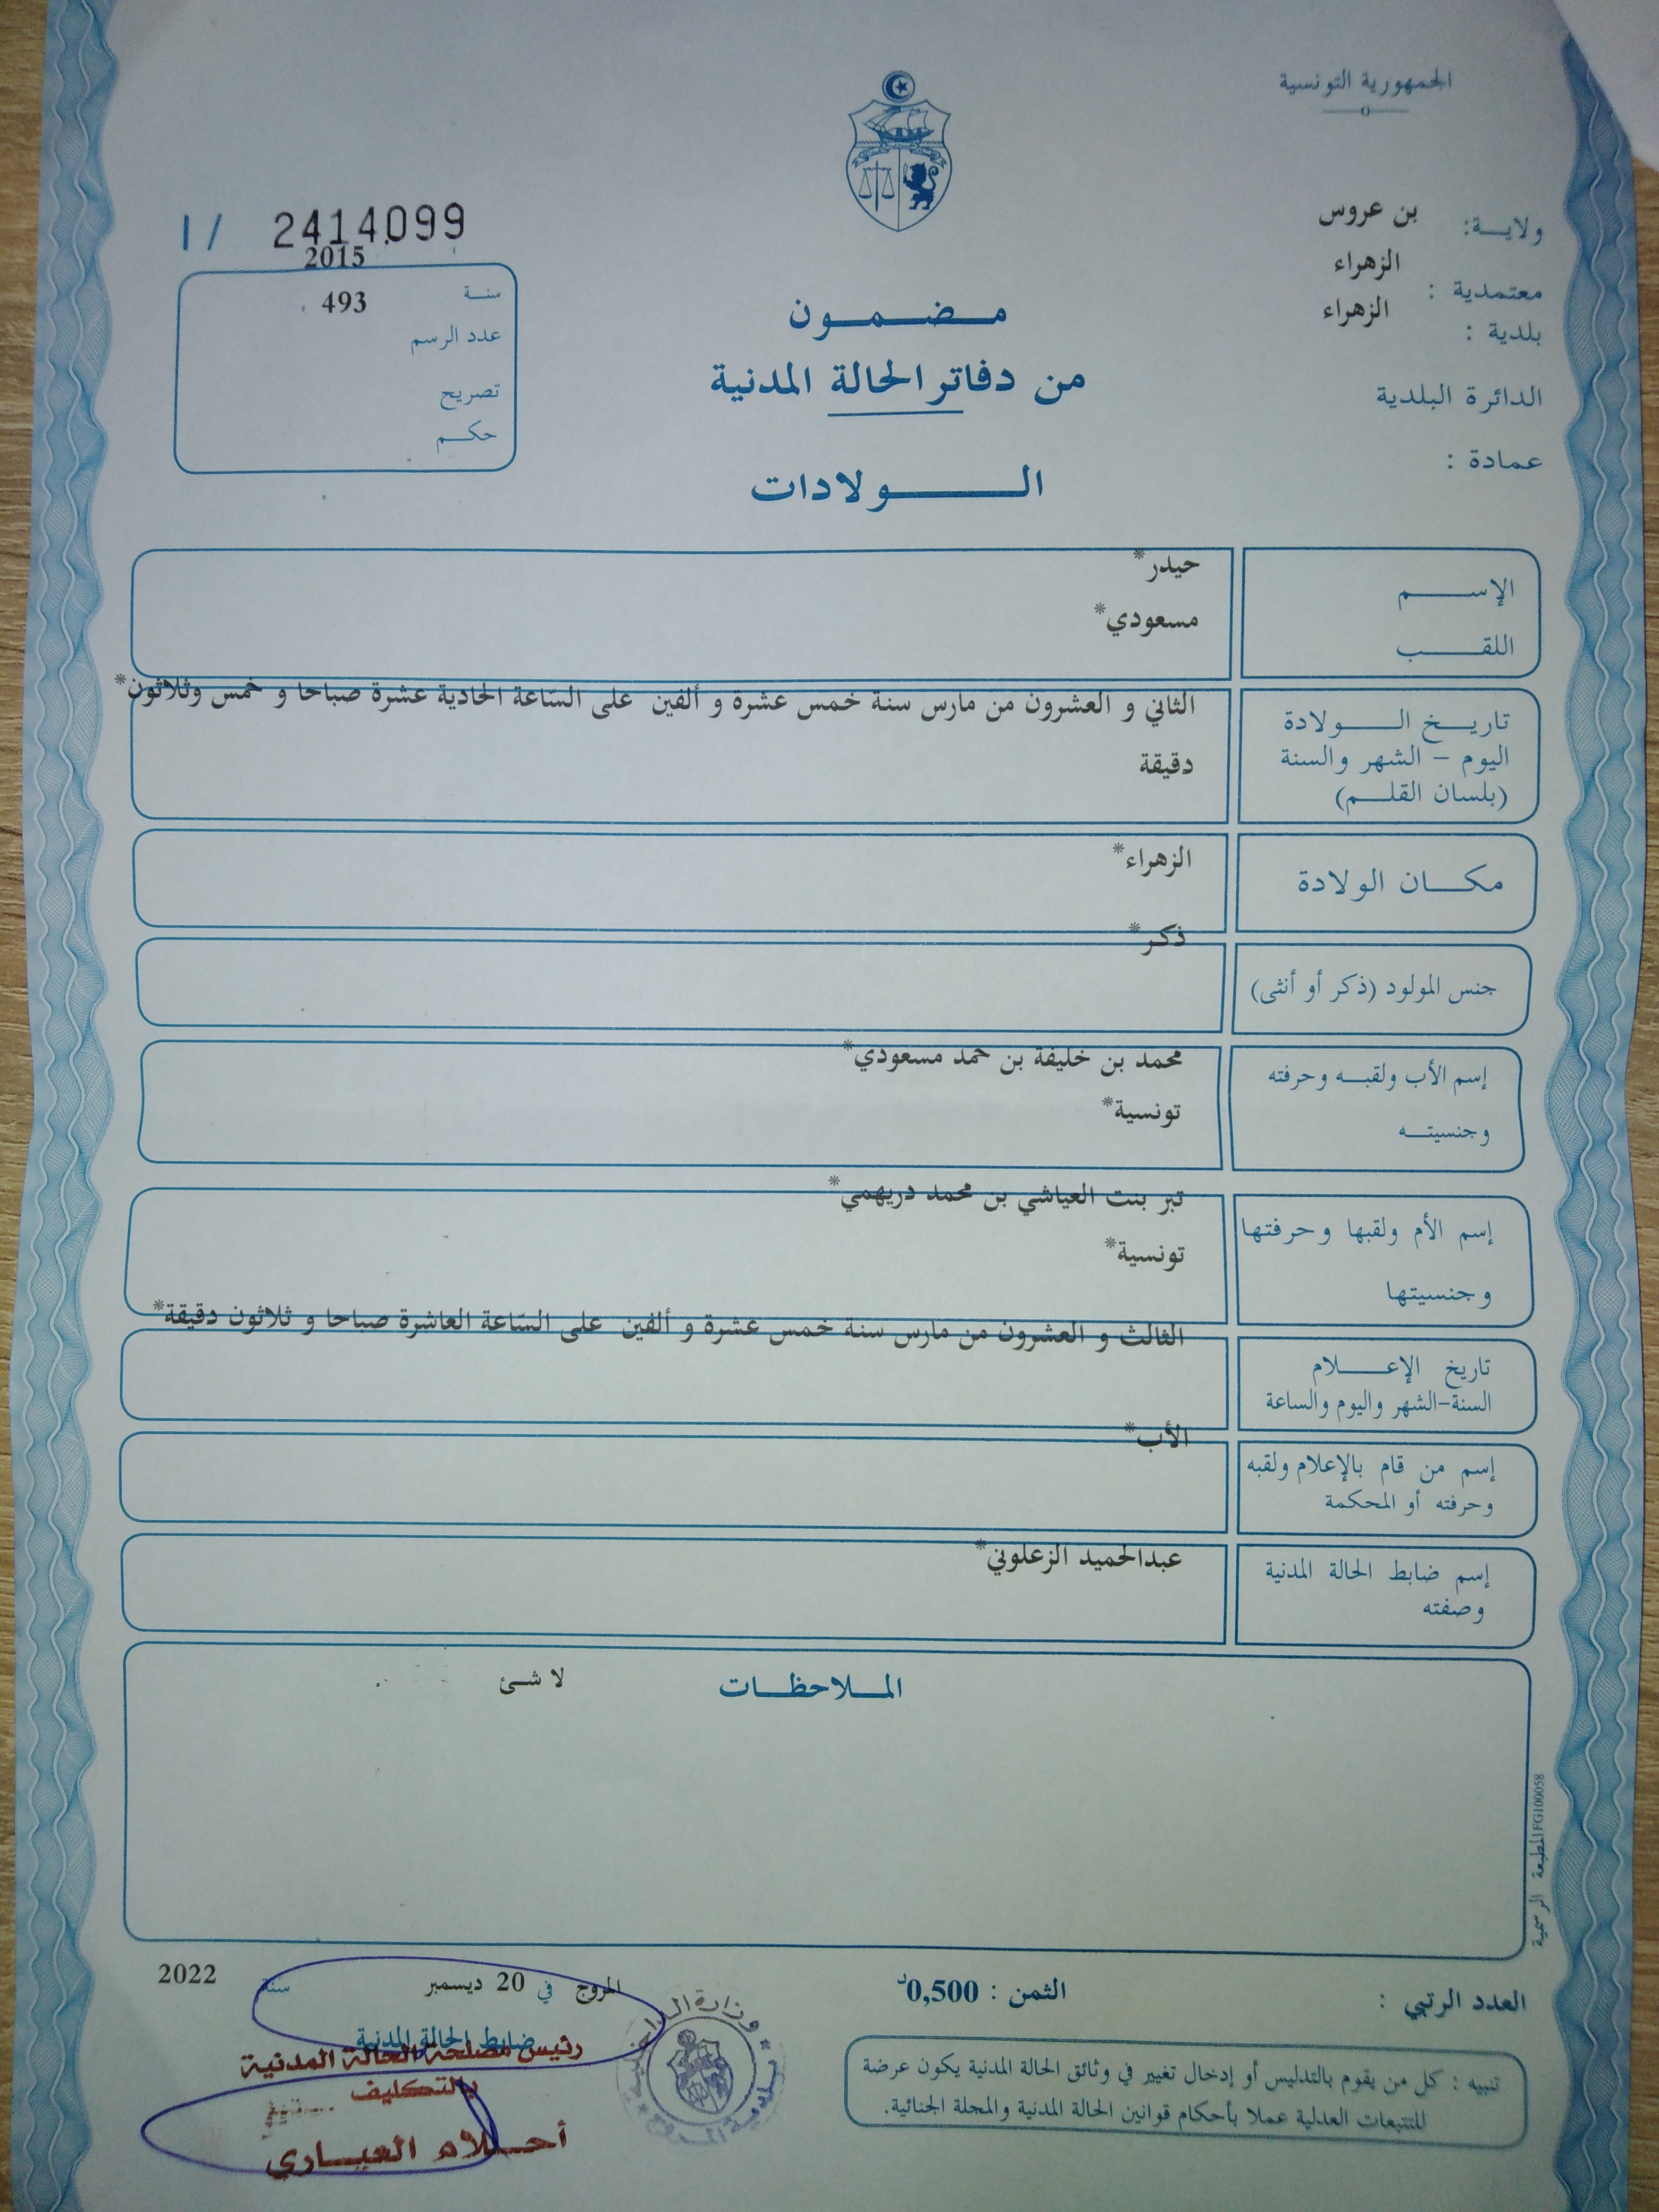 الجمهورية التونسية
ولايـــة: بن عروس
معتمدية : الزهراء
بلدية : الزهراء
الدائرة البلدية
عمادة :
I / 2414099
2015
سنـة 493
عدد الرسم
تصريح
حكــم
مـــضـــمـــون
من دفاتر الحالة المدنية
الـــــولادات
الإســــم حيدر*
اللقــــب مسعودي*
تاريــخ الـــــولادة
اليوم – الشهر والسنة
(بلسان القلــم)
الثاني و العشرون من مارس سنة خمس عشرة و ألفين على السّاعة الحادية عشرة صباحا و خمس وثلاثون*
دقيقة
مكـــان الولادة الزهراء*
جنس المولود (ذكر أو أنثى) ذكر*
إسم الأب ولقبـــه وحرفته
وجنسيتــه
محمد بن خليفة بن حمد مسعودي*
تونسية*
إسم الأم ولقبها وحرفتها
وجنسيتها
تبر بنت العياشي بن محمد دريهمي*
تونسية*
تاريخ الإعـــــلام
السنة-الشهر واليوم والساعة
الثالث و العشرون من مارس سنة خمس عشرة و ألفين على السّاعة العاشرة صباحا و ثلاثون دقيقة*
إسم من قام بالإعلام ولقبه
وحرفته أو المحكمة
الأب*
إسم ضابط الحالة المدنية
وصفته
عبدالحميد الزعلوني*
المـــلاحظـــات لا شئ
المطبعة الرسمية FG100058
العدد الرتبي :
الثمن : 0,500د
المروج في 20 ديسمبر سنة 2022
ضابط الحالة المدنية
رئيس مصلحة الحالة المدنية
بالتكليف
أحـــلام العيـــاري
تنبيه : كل من يقوم بالتدليس أو إدخال تغيير في وثائق الحالة المدنية يكون عرضة
للتتبعات العدلية عملا بأحكام قوانين الحالة المدنية والمجلة الجنائية.
وزارة الداخلية
بلدية المروج